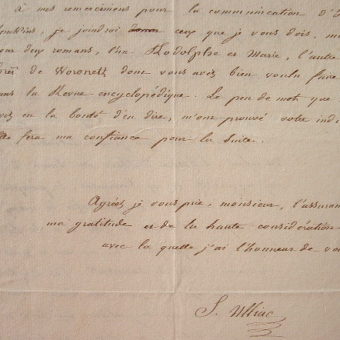 à mes remercîmens pour la communication d'
je joindrai ceux que je vous dois, m
deux romans, l'un Rodolphe et Marie, l'autre
de Woronetz dont vous avez bien voulu faire
dans la Revue encyclopédique. Le peu de mots que
en la bonté d'en dire, m'ont prouvé votre ind
fera ma confiance pour la suite.
Agréez je vous prie, monsieur, l'assuran
ma gratitude et de la haute considération
avec laquelle j'ai l'honneur de vou
S. Ulliac